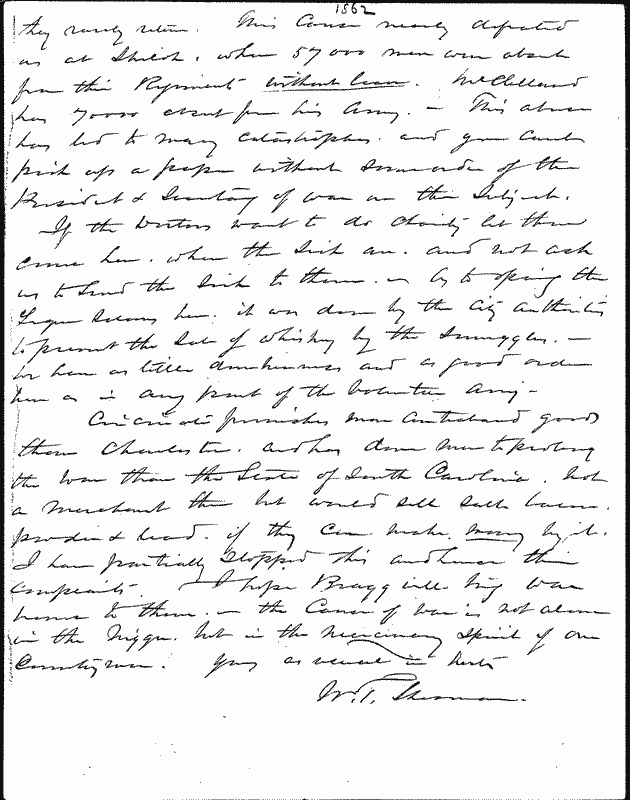 1862
they rarely return. This Cause nearly defeated
us at Shiloh. when 57000 men were absent
from their Regiments without leave. McClelland
has 70000 absent from his Army. – This abuse
has led to many catastrophes. and you cant
pick up a paper without some order of the
President & Secretary of War on the Subject.
If the Doctors want to do charity let them
come here. where the Sick are. and not ask
us to Send the Sick to them. – As to opening the
Liquor Saloons here. it was done by the City authorities
to prevent the Sale of whiskey by the Smugglers. –
We have as little drunkenness and as good order
here as in any part of the Volunteer Army –
Cincinnati furnishes more contraband goods
than Charleston. and has done more to prolong
the War than the State of South Carolina. Not
a merchant there but would sell salt bacon.
powder & lead. if they can make money by it.
I have partially stopped this and hear their
complaints. I hope Bragg will bring war
home to them. – the Cause of War is not alone
in the Nigger. but in the Mercenary Spirit of our
Countrymen. Yrs as ever in haste
W.T. Sherman.